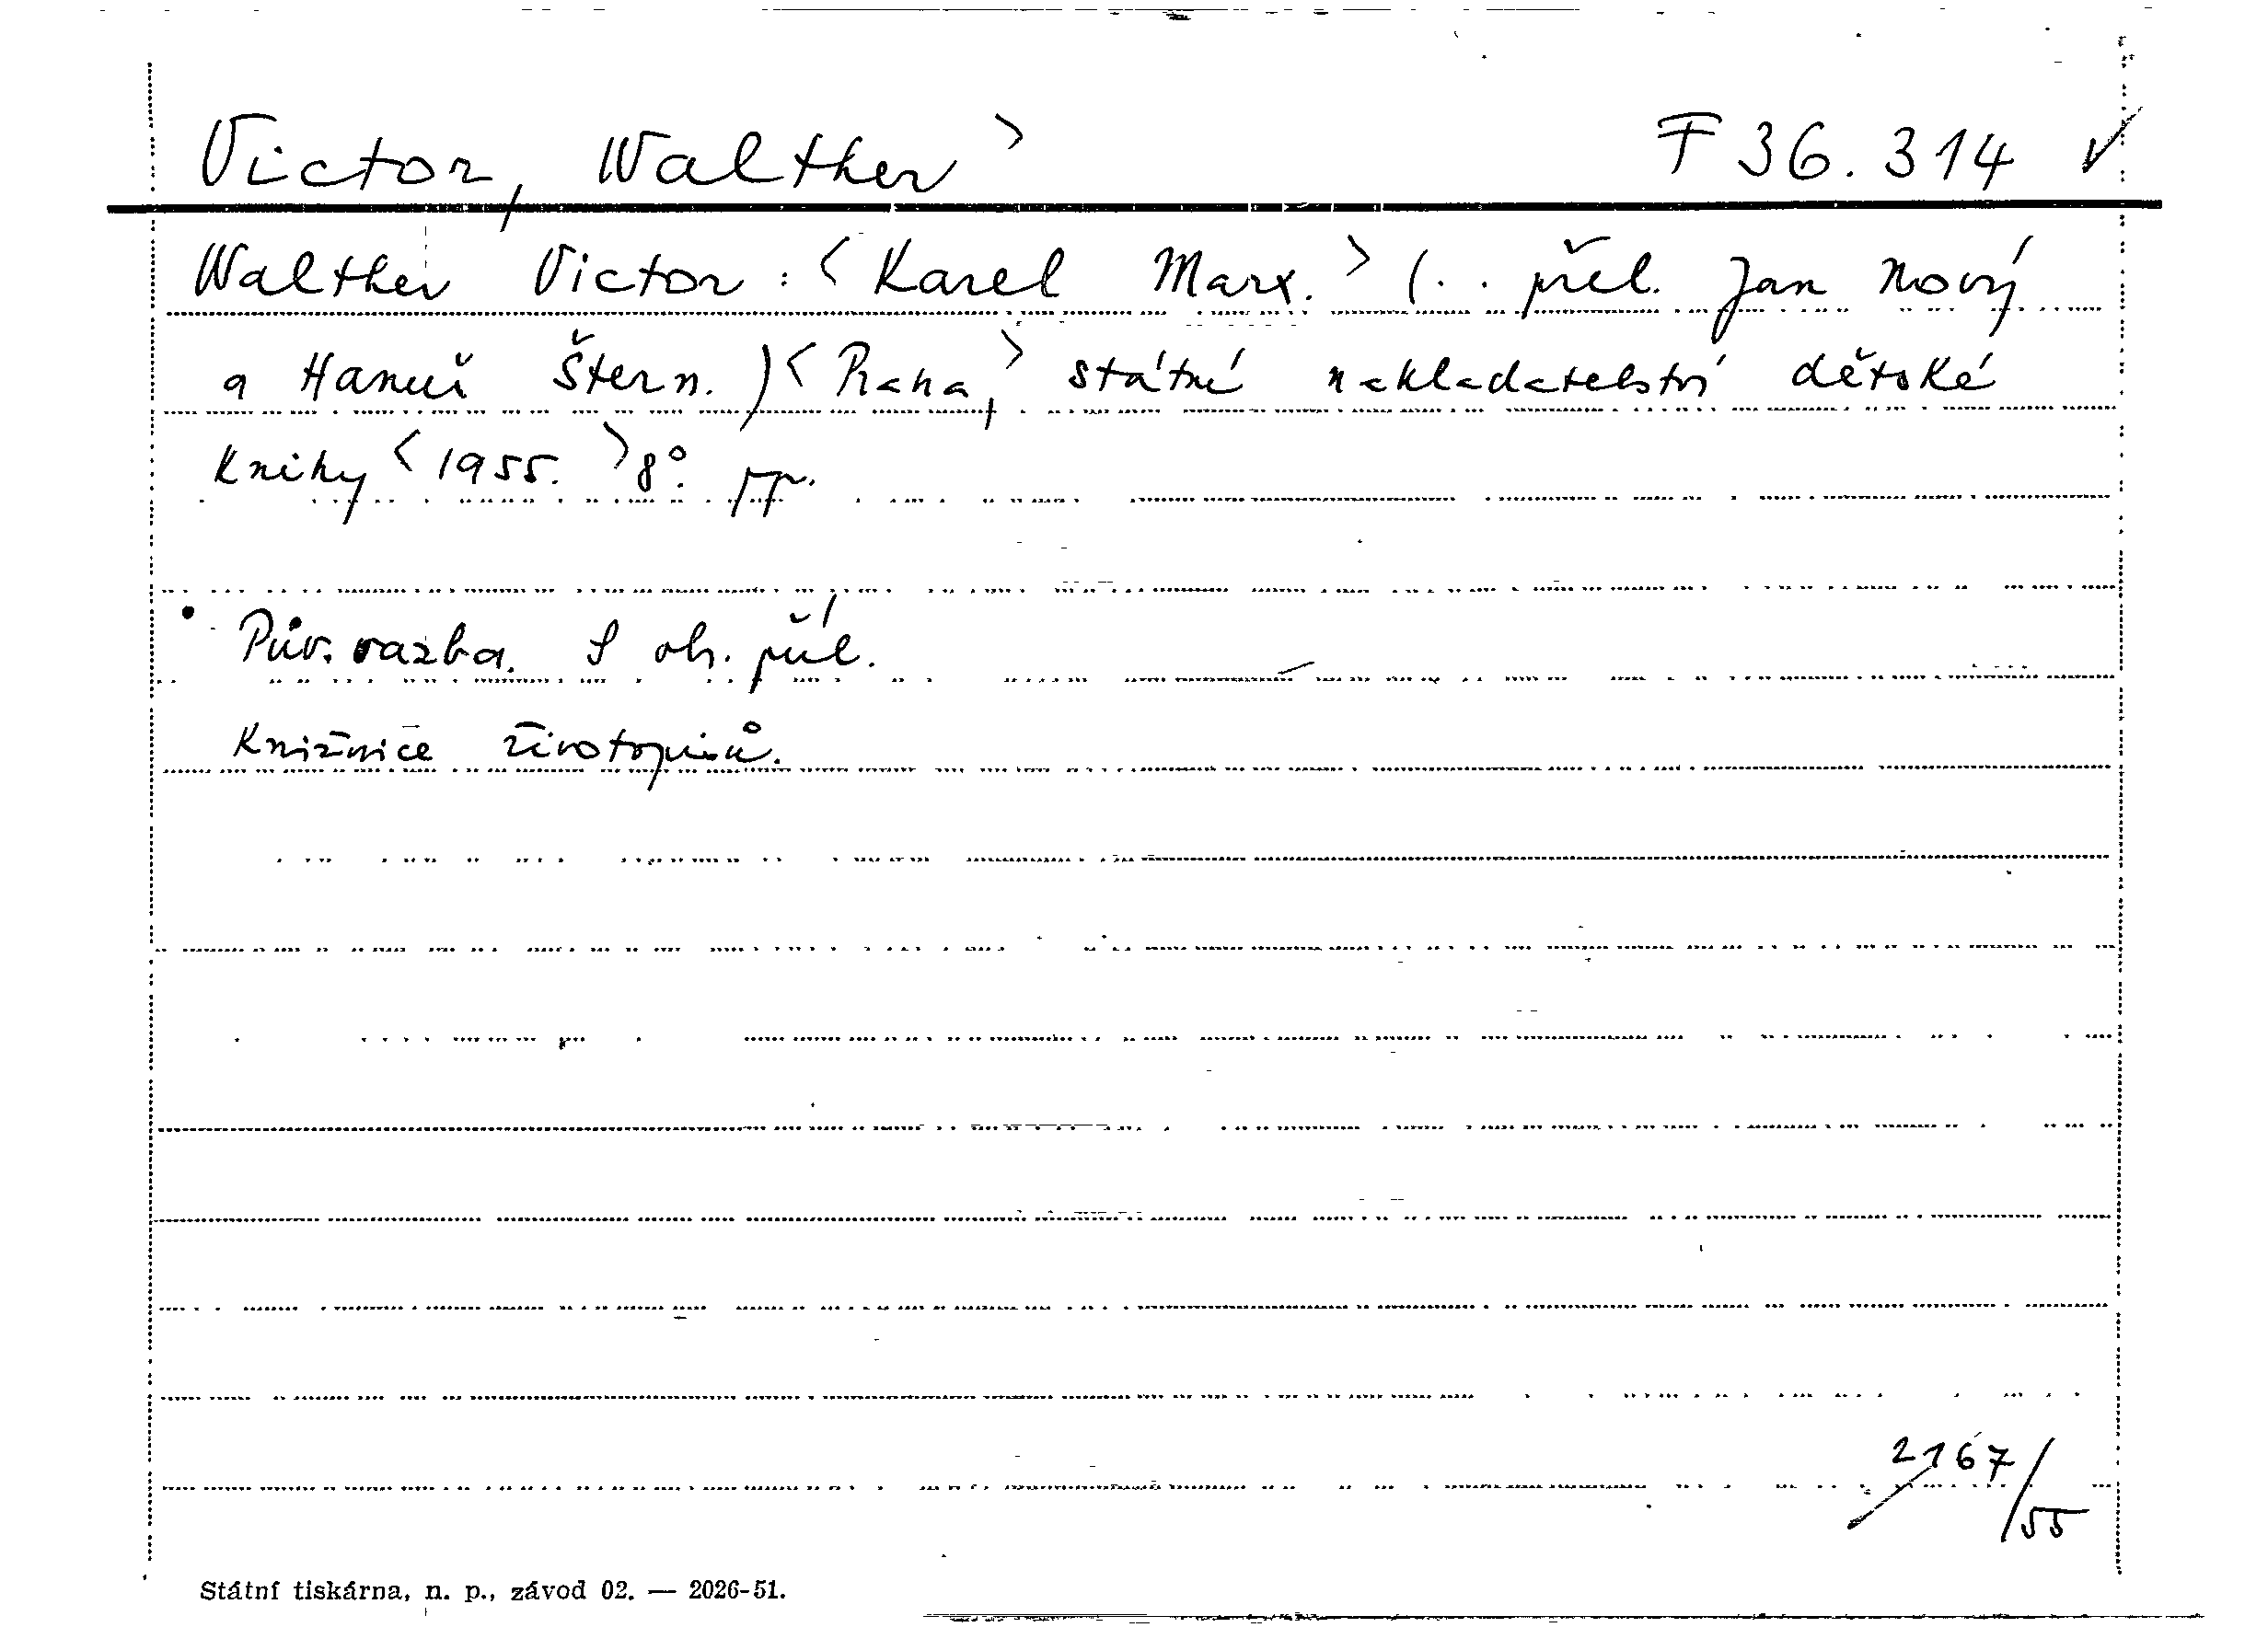 Victor, Walther > F 36.314 ✓
Walther Victor: <Karel Marx.> (.. přel. Jan Nový
a Hanuš Štern.) <Praha,> státní nakladatelství dětské
knihy <1955.> 8°.
Pův. vazba. S obr. příl.
Knižnice životopisů.
2167/55
Státní tiskárna, n. p., závod 02. — 2026-51.